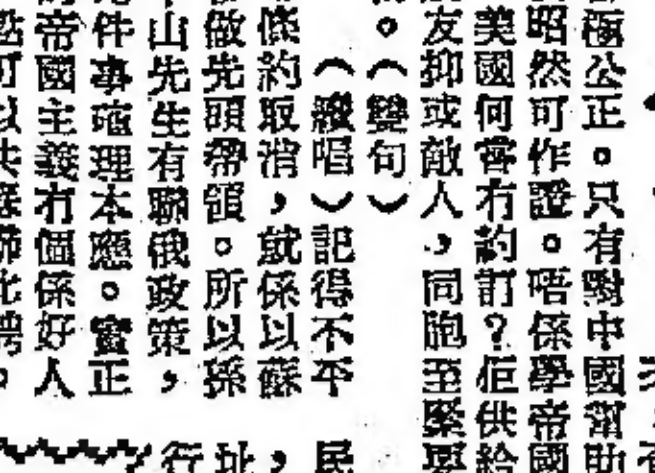 極公正。只有對中國當助
昭然可作證。唔係學帝國
美國何嘗冇約訂?佢供給
友抑或敵人,同胞至緊要
。(雙句)
(縵唱)記得不平
條約取消,就係以蘇
做先頭帶領。所以孫
山先生有聯俄政策,
件事確理本應。正
帝國主義冇個係好人
民
,
址
行